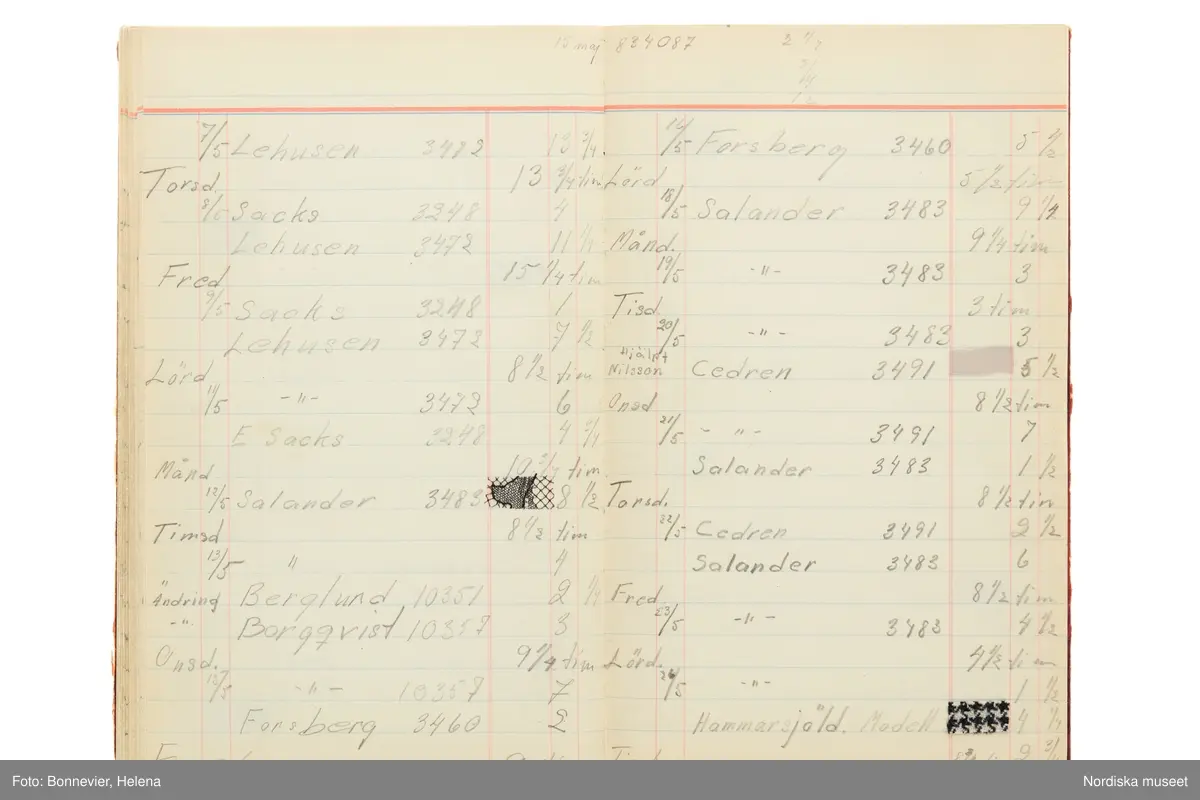 15 maj 834087
7/5 Lehusen 3482 13 3/4
Torsd. 13 3/4 tim
8/5 Sacks 3248 4
Lehusen 3472 11
Fred 15 1/4 tim
9/5 Sacks 3248 1
Lehusen 3472 7 1/2
Lörd 8 1/2 tim
11/5 -"- 3472 6
E Sacks 3248 4 3/4
Månd 10 tim
12/5 Salander 3483 8 1/2
Timsd 8 1/2 tim
13/5 " 4
Ändring Berglund 10351 2 1/4
-"- Borgqvist 10357 3
Onsd. 9 1/4 tim
-"- 10357 7
Forsberg 3460 2
2
14/5 Forsberg 3460 5 1/2
Lörd 5 1/2 tim
18/5 Salander 3483 9 1/4
Månd. 9 1/4 tim
19/5 -"- 3483 3
Tisd. 3 tim
20/5 -"- 3483 3
Hjälpt
Nilsson Cedren 3491 5 1/2
Onsd 8 1/2 tim
21/5 -"- 3491 7
Salander 3483 1 1/2
Torsd. 8 1/2 tim
22/5 Cedren 3491 2 1/2
Salander 3483 6
Fred 8 1/2 tim
23/5 -"- 3483 4 1/2
Lörd. 4 1/2 tim
-"- 1 1/2
Hammarsjöld. Modell 4 1/4
2 3/4
Foto: Bonnevier, Helena
Nordiska museet